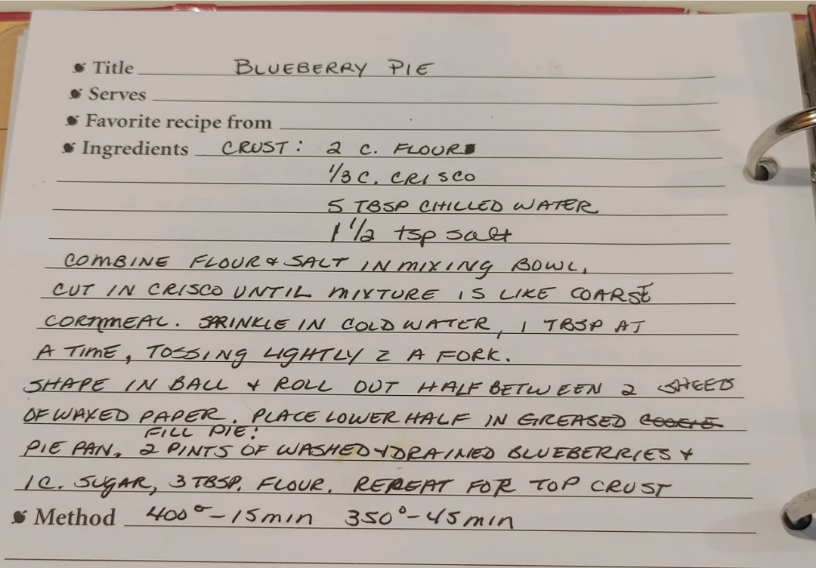 Title BLUEBERRY PIE
Serves
Favorite recipe from
Ingredients CRUST: 2 C. FLOUR
1/3 C. CRISCO
5 TBSP CHILLED WATER
1 1/2 tsp salt
COMBINE FLOUR & SALT IN MIXING BOWL,
CUT IN CRISCO UNTIL MIXTURE IS LIKE COARSE
CORNMEAL. SPRINKLE IN COLD WATER, 1 TBSP AT
A TIME, TOSSING LIGHTLY Z A FORK.
SHAPE IN BALL & ROLL OUT HALF BETWEEN 2 SHEETS
OF WAXED PAPER. PLACE LOWER HALF IN GREASED COOKIE
FILL PIE:
PIE PAN. 2 PINTS OF WASHED & DRAINED BLUEBERRIES &
1 C. SUGAR, 3 TBSP. FLOUR. REPEAT FOR TOP CRUST
Method 400° - 15 min 350° - 45 min